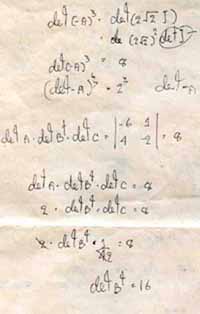 det (-A)³ = det (2√2 I)
= de (2√2)² det I
det(-A)³ = 8
(det -A)³ = 2³ det -A
det A · det B⁴ · det C = |-6 1 4 -2| = 8
det A · det B⁴ · det C = 8
2 · det B⁴ · det C = 8
2 · det B⁴ · 1 = 8
det B⁴ = 16